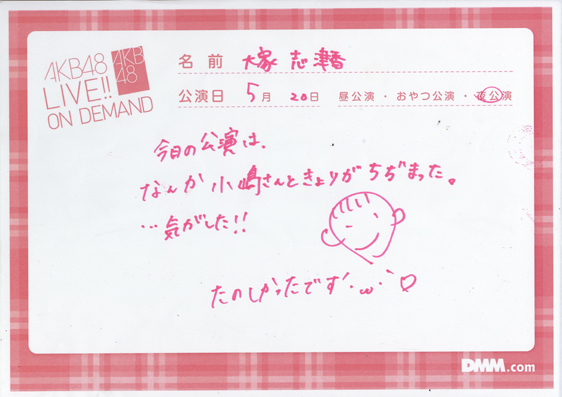 AKB48
LIVE!!
ON DEMAND
AKB
48
名前 大家 志津香
公演日 5月 20日 昼公演・おやつ公演・夜公演
今日の公演は、
なんか小嶋さんときょりがちぢまった。
…気がした!!
たのしかったです´・ω・`♡
DMM.com